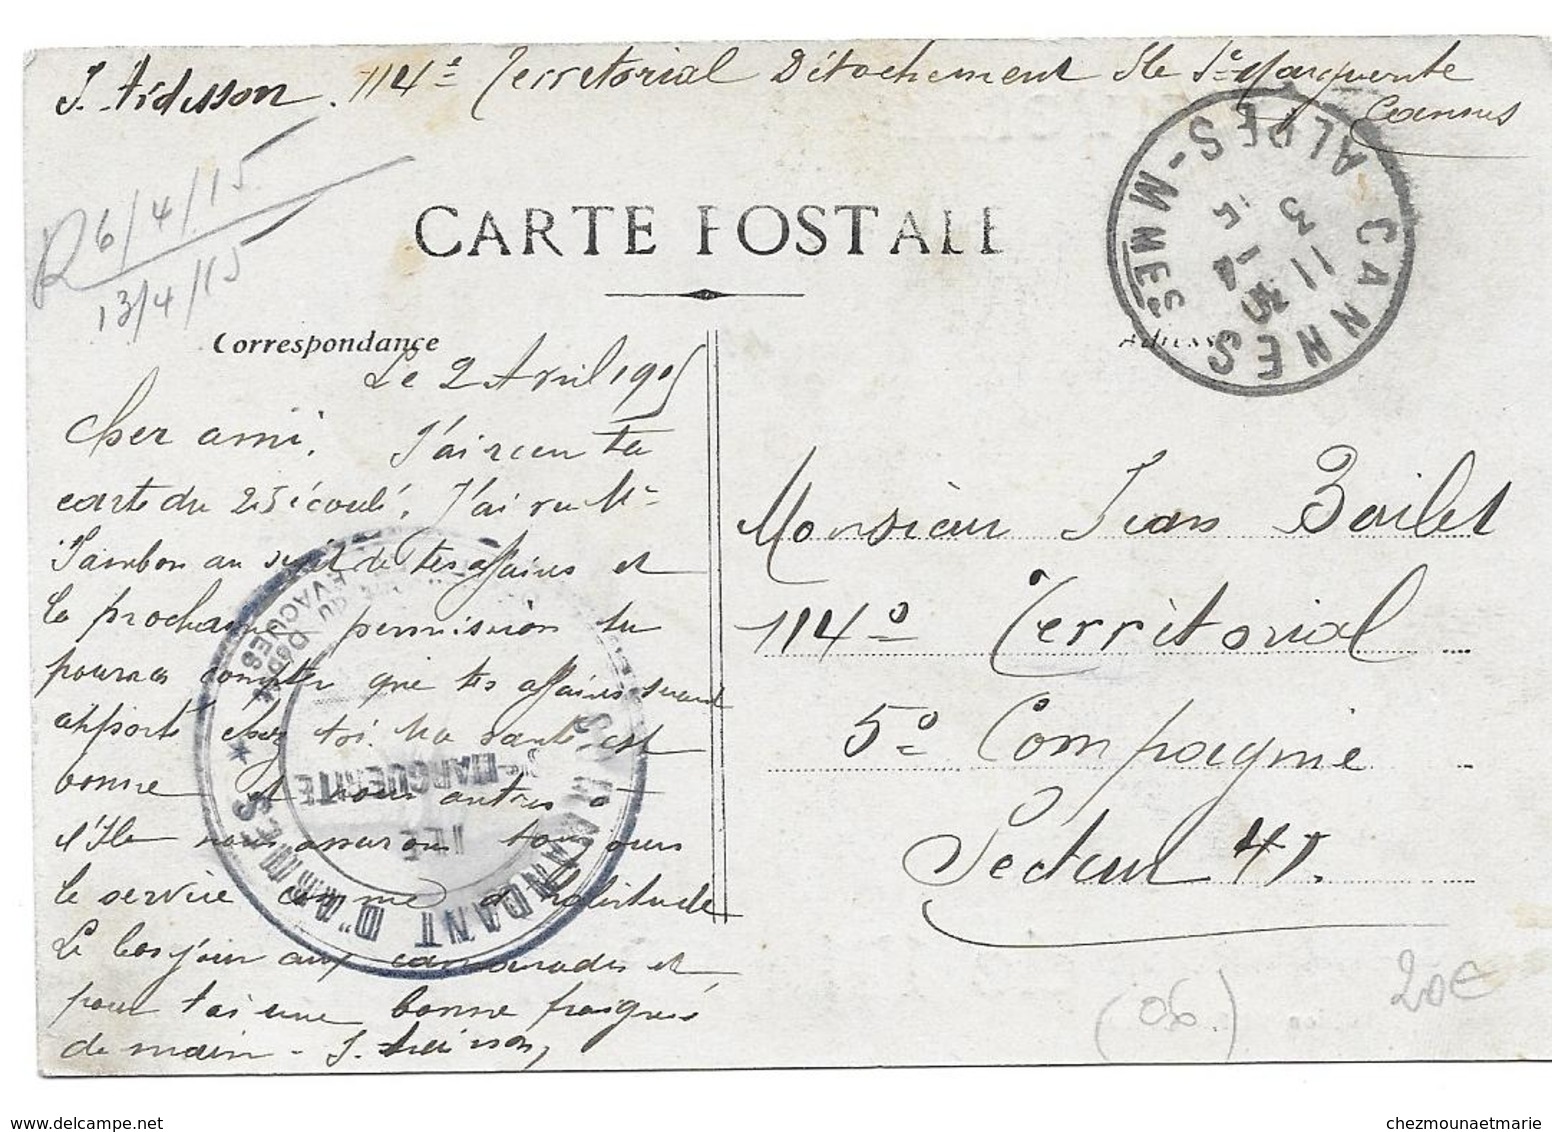 J. Ardisson. 114e Territorial Détachement Ile Ste Marguerite
Cannes
R 6/4/15
13/4/15
CARTE POSTALE
CANNES
ALPES-MMES
11 30
3
Correspondance
Adresse
Le 2 Avril 1915
Cher ami, J'ai recu ta
carte du 25 écoulé, J'ai vu Mr
Jambon au sujet de tes affaires et
la prochaine permission tu
pourras compter que tes affaires seront
apporté chez toi. Ma santé est
bonne et nous autres à
l'Ile nous assurons toujours
le service comme d'habitude
Le bonjour aux camarades et
pour toi une bonne poignés
de main - J. Ardisson,
Monsieur Jean Bailet
114e Territorial
5e Compagnie
Secteur 45.
COMMANDANT D'ARMES
DU DÉPÔT
EVACUÉS
ILE
Ste MARGUERITE
(06)
20€
chezmounaetmarie